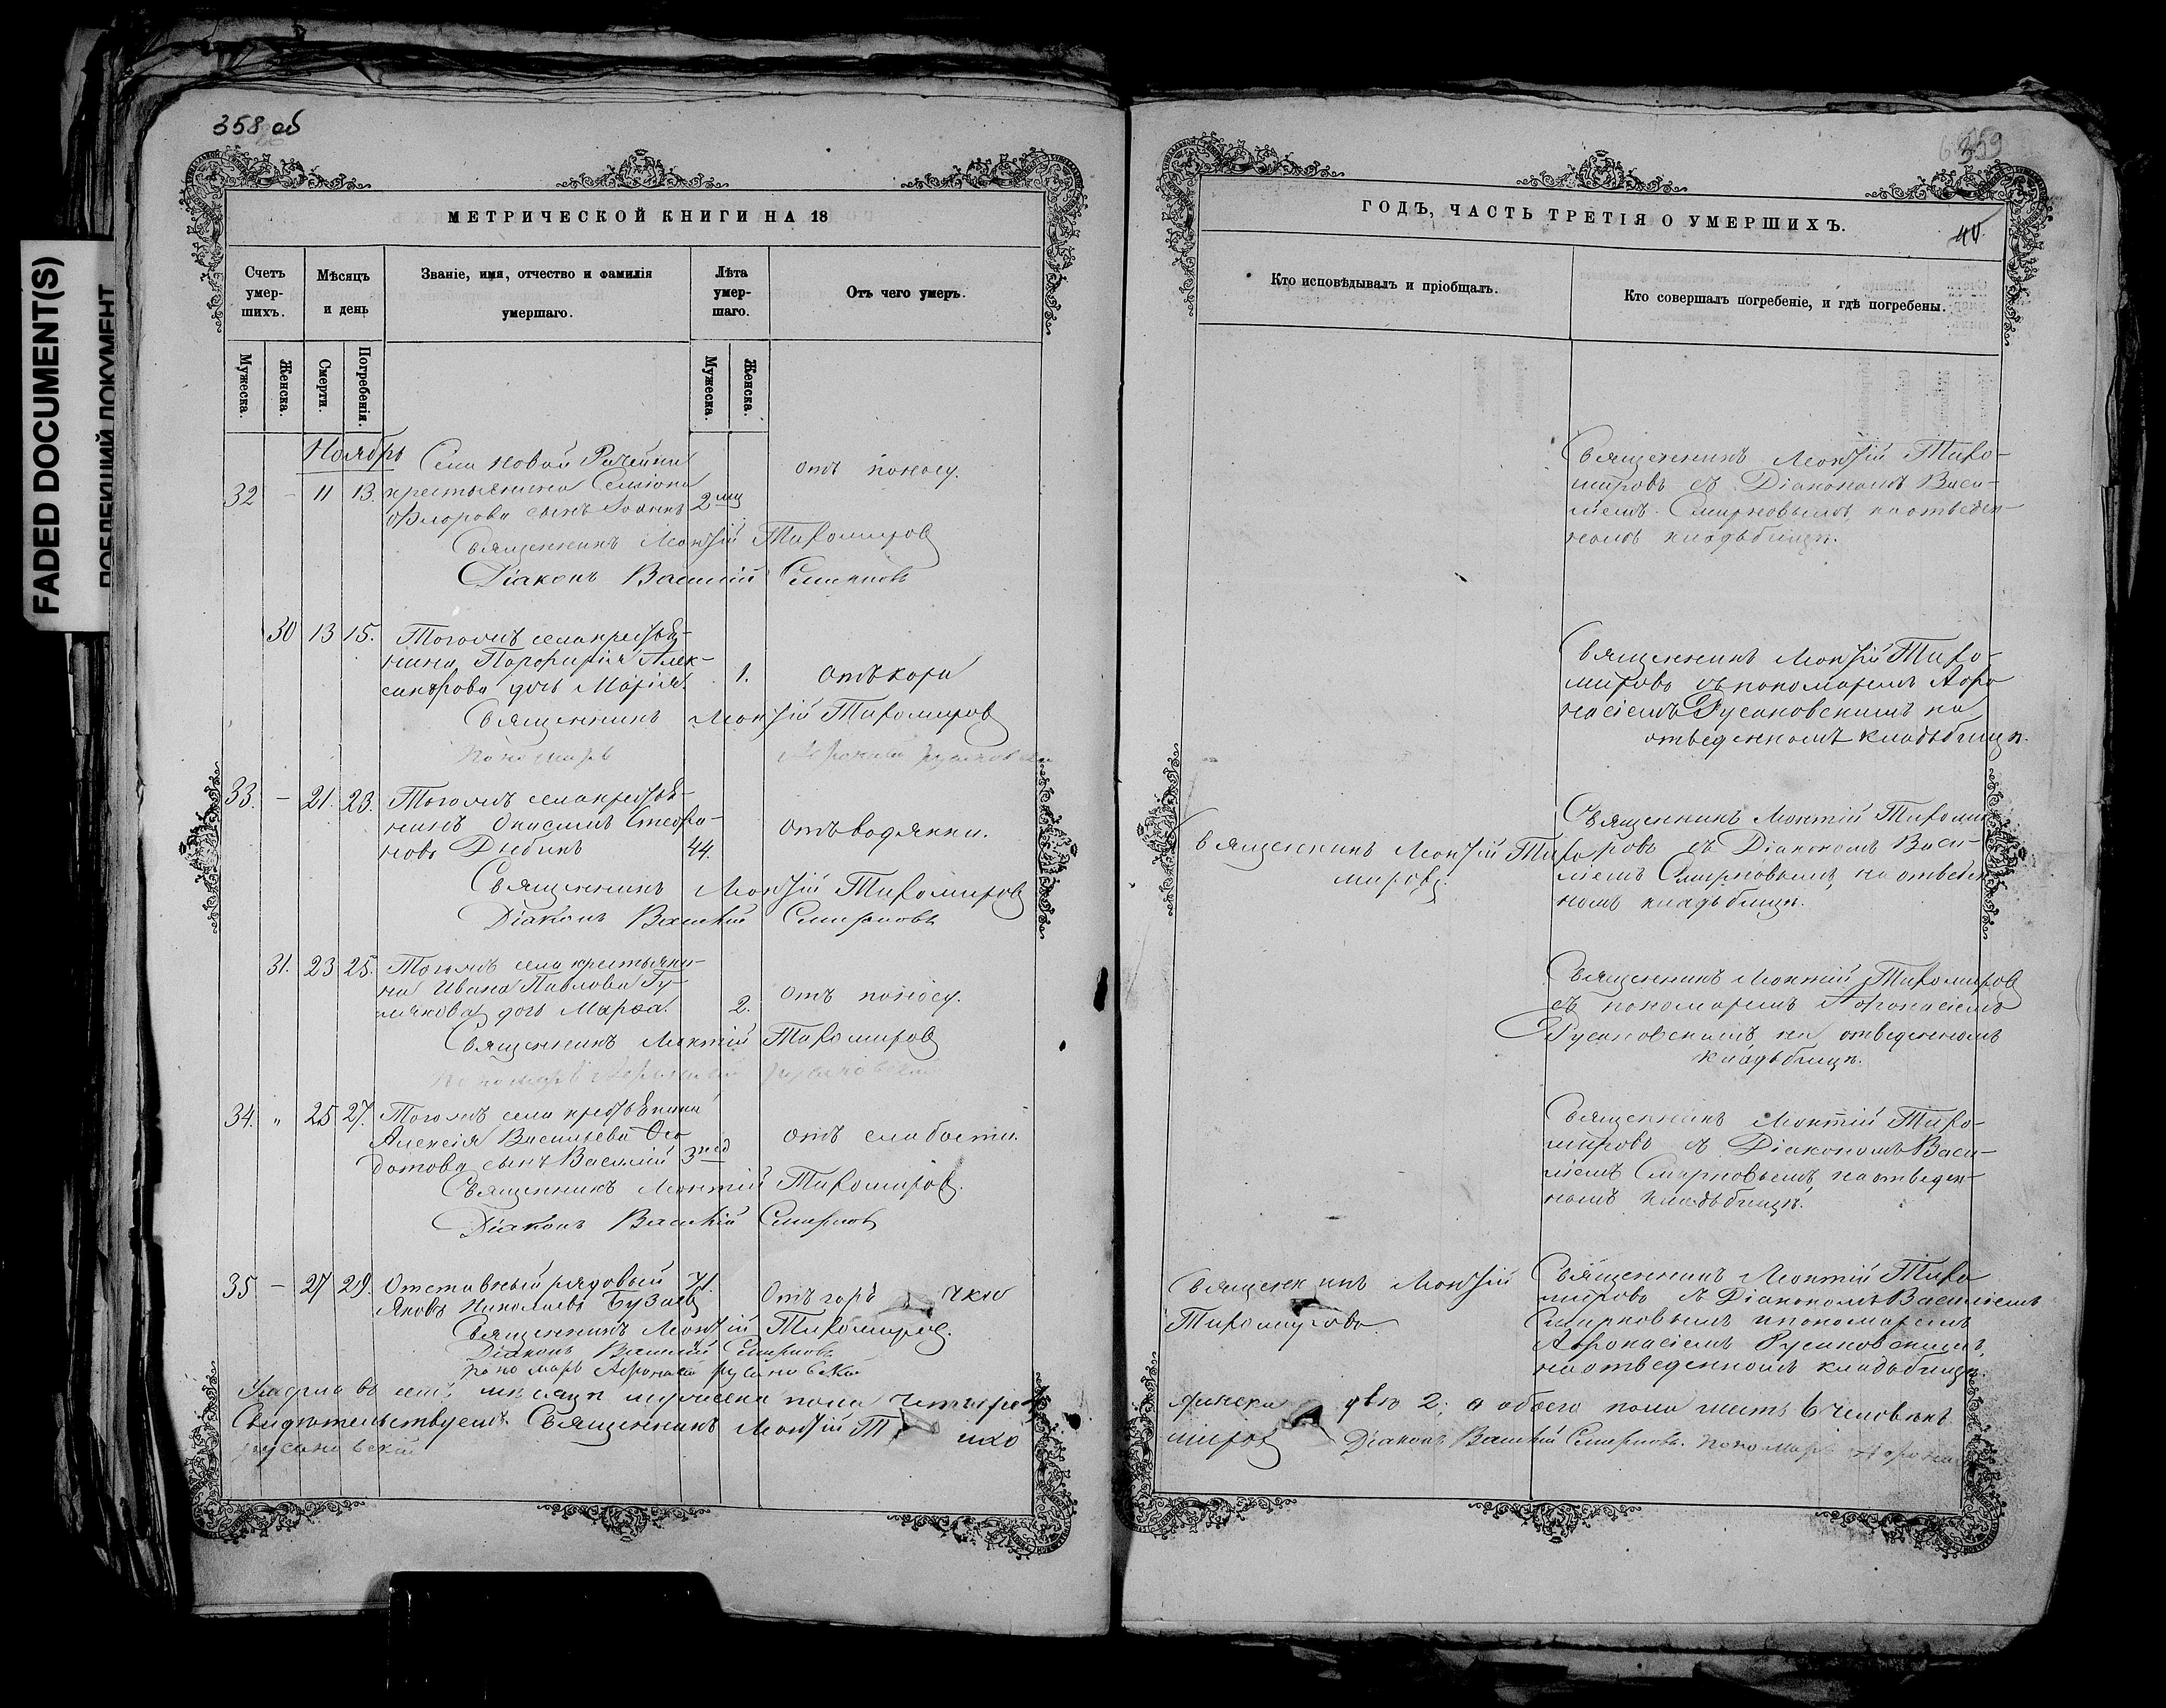 FADED DOCUMENT(S)
358 об
МЕТРИЧЕСКОЙ КНИГИ НА 18
Счетъ умер-шихъ.
Мѣсяцъ и день
Званіе, имя, отчество и фамилія умершаго.
Лѣта умер-шаго.
Отъ чего умеръ.
Мужеска.
Женска.
Смерти.
Погребенія.
Мужеска.
Женска.
Ноябрь
Села Новой Рачейки
32 - 11 13. крестьянина Семіона 2 мц отъ поносу.
Флорова сынъ Іоаннъ
Священникъ Леонтій Тихомировъ
Діаконъ Василій Смирновъ
30 13 15. Тогожъ села крестья-
нина Порфирія Алек-
сандрова дочь Марія. 1. Отъ кори
Священникъ Леонтій Тихомировъ
Пономарь Афонасій Русановскій
33. - 21. 23. Тогожъ села крестья-
нинъ Анисимъ Стефа- отъ водянки.
новъ 44.
Священникъ Леонтій Тихомировъ
Діаконъ Василій Смирновъ
31. 23 25. Тогожъ села крестьяни-
на Ивана Павлова Гу-
2. отъ поносу.
дочь Марѳа.
Священникъ Леонтій Тихомировъ
Пономарь Афонасій Русановскій
34. " 25 27. Тогожъ села крестьянина
Алексія Васильева Ѳео
дотова сынъ Василій 3 нед отъ слабости.
Священникъ Леонтій Тихомировъ.
Діаконъ Василій Смирновъ
35 - 27 29. Отставный рядовый 71.
Яковъ Николаевъ Бузаевъ Отъ горячкю
Священникъ Леонтій Тихомировъ.
Діаконъ Василій Смирновъ
Пономарь Афонасій Русановскій
мѣсяцѣ мужеска пола четыре
Свидѣтельствуемъ. Священникъ Леонтій Тихо
Русановскій
359
ГОДЪ, ЧАСТЬ ТРЕТІЯ О УМЕРШИХЪ.
40.
Кто исповѣдывалъ и пріобщалъ.
Кто совершалъ погребеніе, и гдѣ погребены.
Священникъ Леонтій Тихо-
мировъ съ Діакономъ Васи-
ліемъ Смирновымъ, на отведен-
номъ кладьбищѣ.
Священникъ Леонтій Тихо-
мировъ съ пономаремъ Афо
насіемъ Русановскимъ на
отведенномъ кладьбищѣ.
Священникъ Леонтій Тихо
мировъ.
Священникъ Леонтій Тихоми
ровъ съ Діакономъ Васи-
ліемъ Смирновымъ, на отведен
номъ кладьбищѣ.
Священникъ Леонтій Тихомировъ
съ пономаремъ Афонасіемъ
Русановскимъ, на отведенномъ
кладьбищѣ.
Священникъ Леонтій Тихо-
мировъ съ Діакономъ Васи-
ліемъ Смирновымъ, на отведен-
номъ кладьбищѣ.
Священникъ Леонтій
Тихомировъ.
Священникъ Леонтій Тихо
мировъ съ Діакономъ Василіемъ
Смирновымъ и пономаремъ
Афонасіемъ Русановскимъ,
на отведенномъ кладьбищѣ.
женска двѣ 2; а обоего пола шесть 6 человѣкъ
мировъ Діаконъ Василій Смирновъ. Пономарь Афонасій